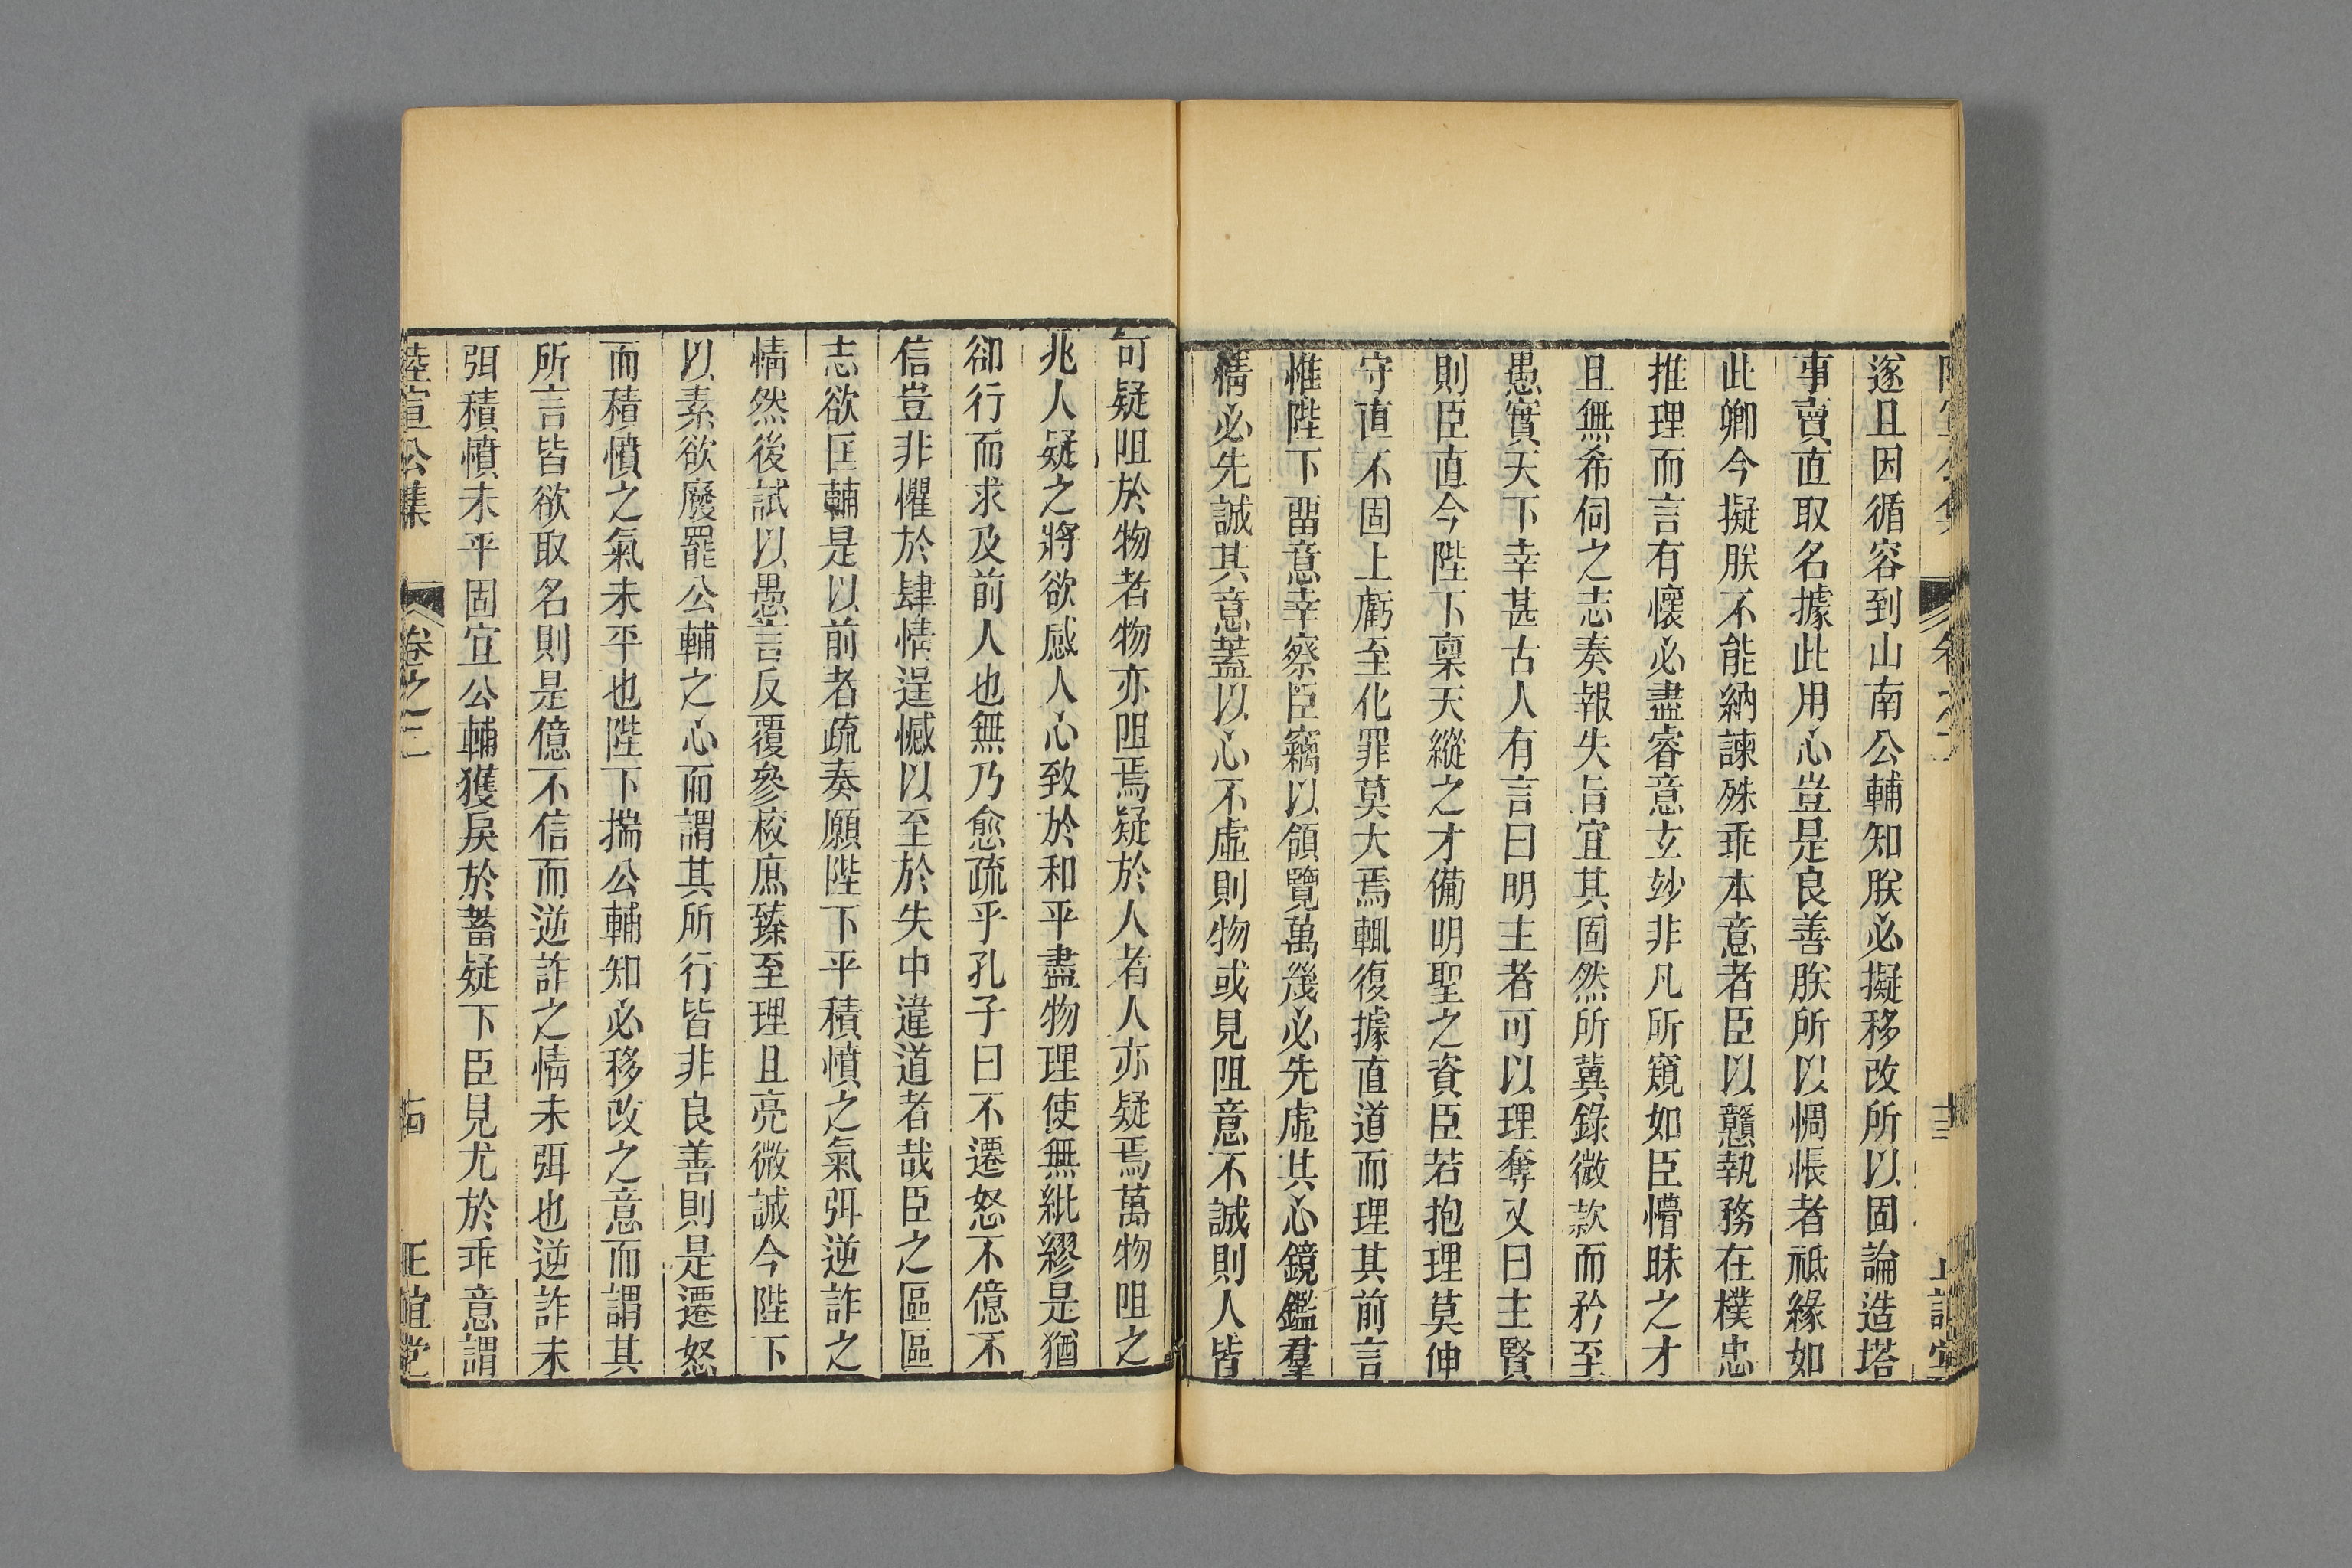 遂且因循容到山南公輔知朕必擬移改所以固論造塔
事賣直取名據此用心豈是良善朕所以惆悵者祗緣如
此卿今擬朕不能納諫殊乖本意者臣以戇執務在樸忠
推理而言有懷必盡睿意玄妙非凡所窺如臣懵昧之才
且無希伺之志奏報失旨宜其固然所冀錄微款而矜至
愚實天下幸甚古人有言曰明主者可以理奪又曰主賢
則臣直今陛下稟天縱之才備明聖之資臣若抱理莫伸
守直不固上虧至化罪莫大焉輒復據直道而理其前言
惟陛下畱意幸察臣竊以領覽萬幾必先虛其心鏡鑑羣
情必先誠其意蓋以心不虛則物或見阻意不誠則人皆
可疑阻於物者物亦阻焉疑於人者人亦疑焉萬物阻之
兆人疑之將欲感人心致於和平盡物理使無紕繆是猶
卻行而求及前人也無乃愈疏乎孔子曰不遷怒不億不
信豈非懼於肆情逞憾以至於失中違道者哉臣之區區
志欲匡輔是以前者疏奏願陛下平積憤之氣弭逆詐之
情然後試以愚言反覆參校庶臻至理且亮微誠今陛下
以素欲廢罷公輔之心而謂其所行皆非良善則是遷怒
而積憤之氣未平也陛下揣公輔知必移改之意而謂其
所言皆欲取名則是億不信而逆詐之情未弭也逆詐未
弭積憤未平固宜公輔獲戾於蓄疑下臣見尤於乖意謂
陸宣公集 卷之二 十四 正誼堂